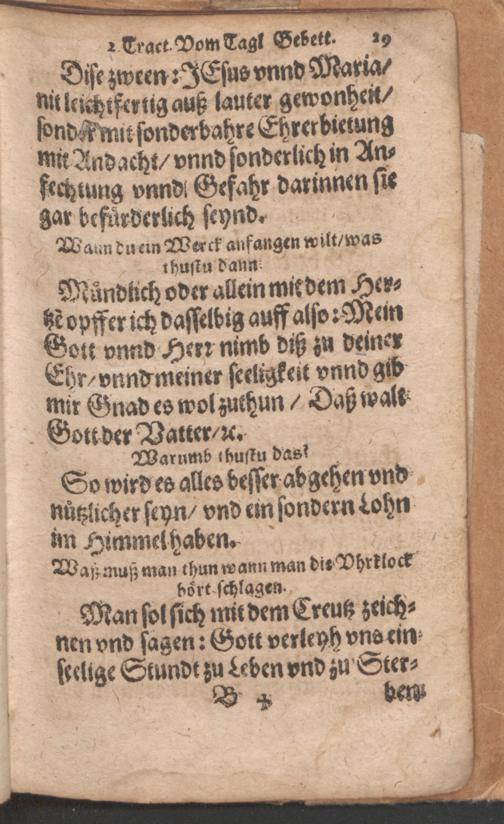 2. Tract. Vom Tagl Gebett. 29
Dise zween: JEsus vnnd Maria/
nit leichtfertig auß lauter gewonheit/
sonder mit sonderbahre Ehrerbietung
mit Andacht/ vnnd sonderlich in An-
fechtung vnnd Gefahr darinnen sie
gar befürderlich seynd.
Wann du ein Werck anfangen wilt/was
thustu dann:
Mündlich oder allein mit dem Her-
tzẽ opffer ich dasselbig auff also: Mein
Gott vnnd Herr nimb diß zu deiner
Ehr/vnnd meiner seeligkeit vnnd gib
mir Gnad es wol zuthun / Daß walt
Gott der Vatter/ꝛc.
Warumb thustu das?
So wird es alles besser abgehen vnd
nützlicher seyn/ vnd ein sondern Lohn
im Himmel haben.
Waß muß man thun wann man die Vhrklock
hört schlagen.
Man sol sich mit dem Creutz zeich-
nen vnd sagen: Gott verleyh vns ein
seelige Stundt zu Leben vnd zu Ster-
B ✠ ben: